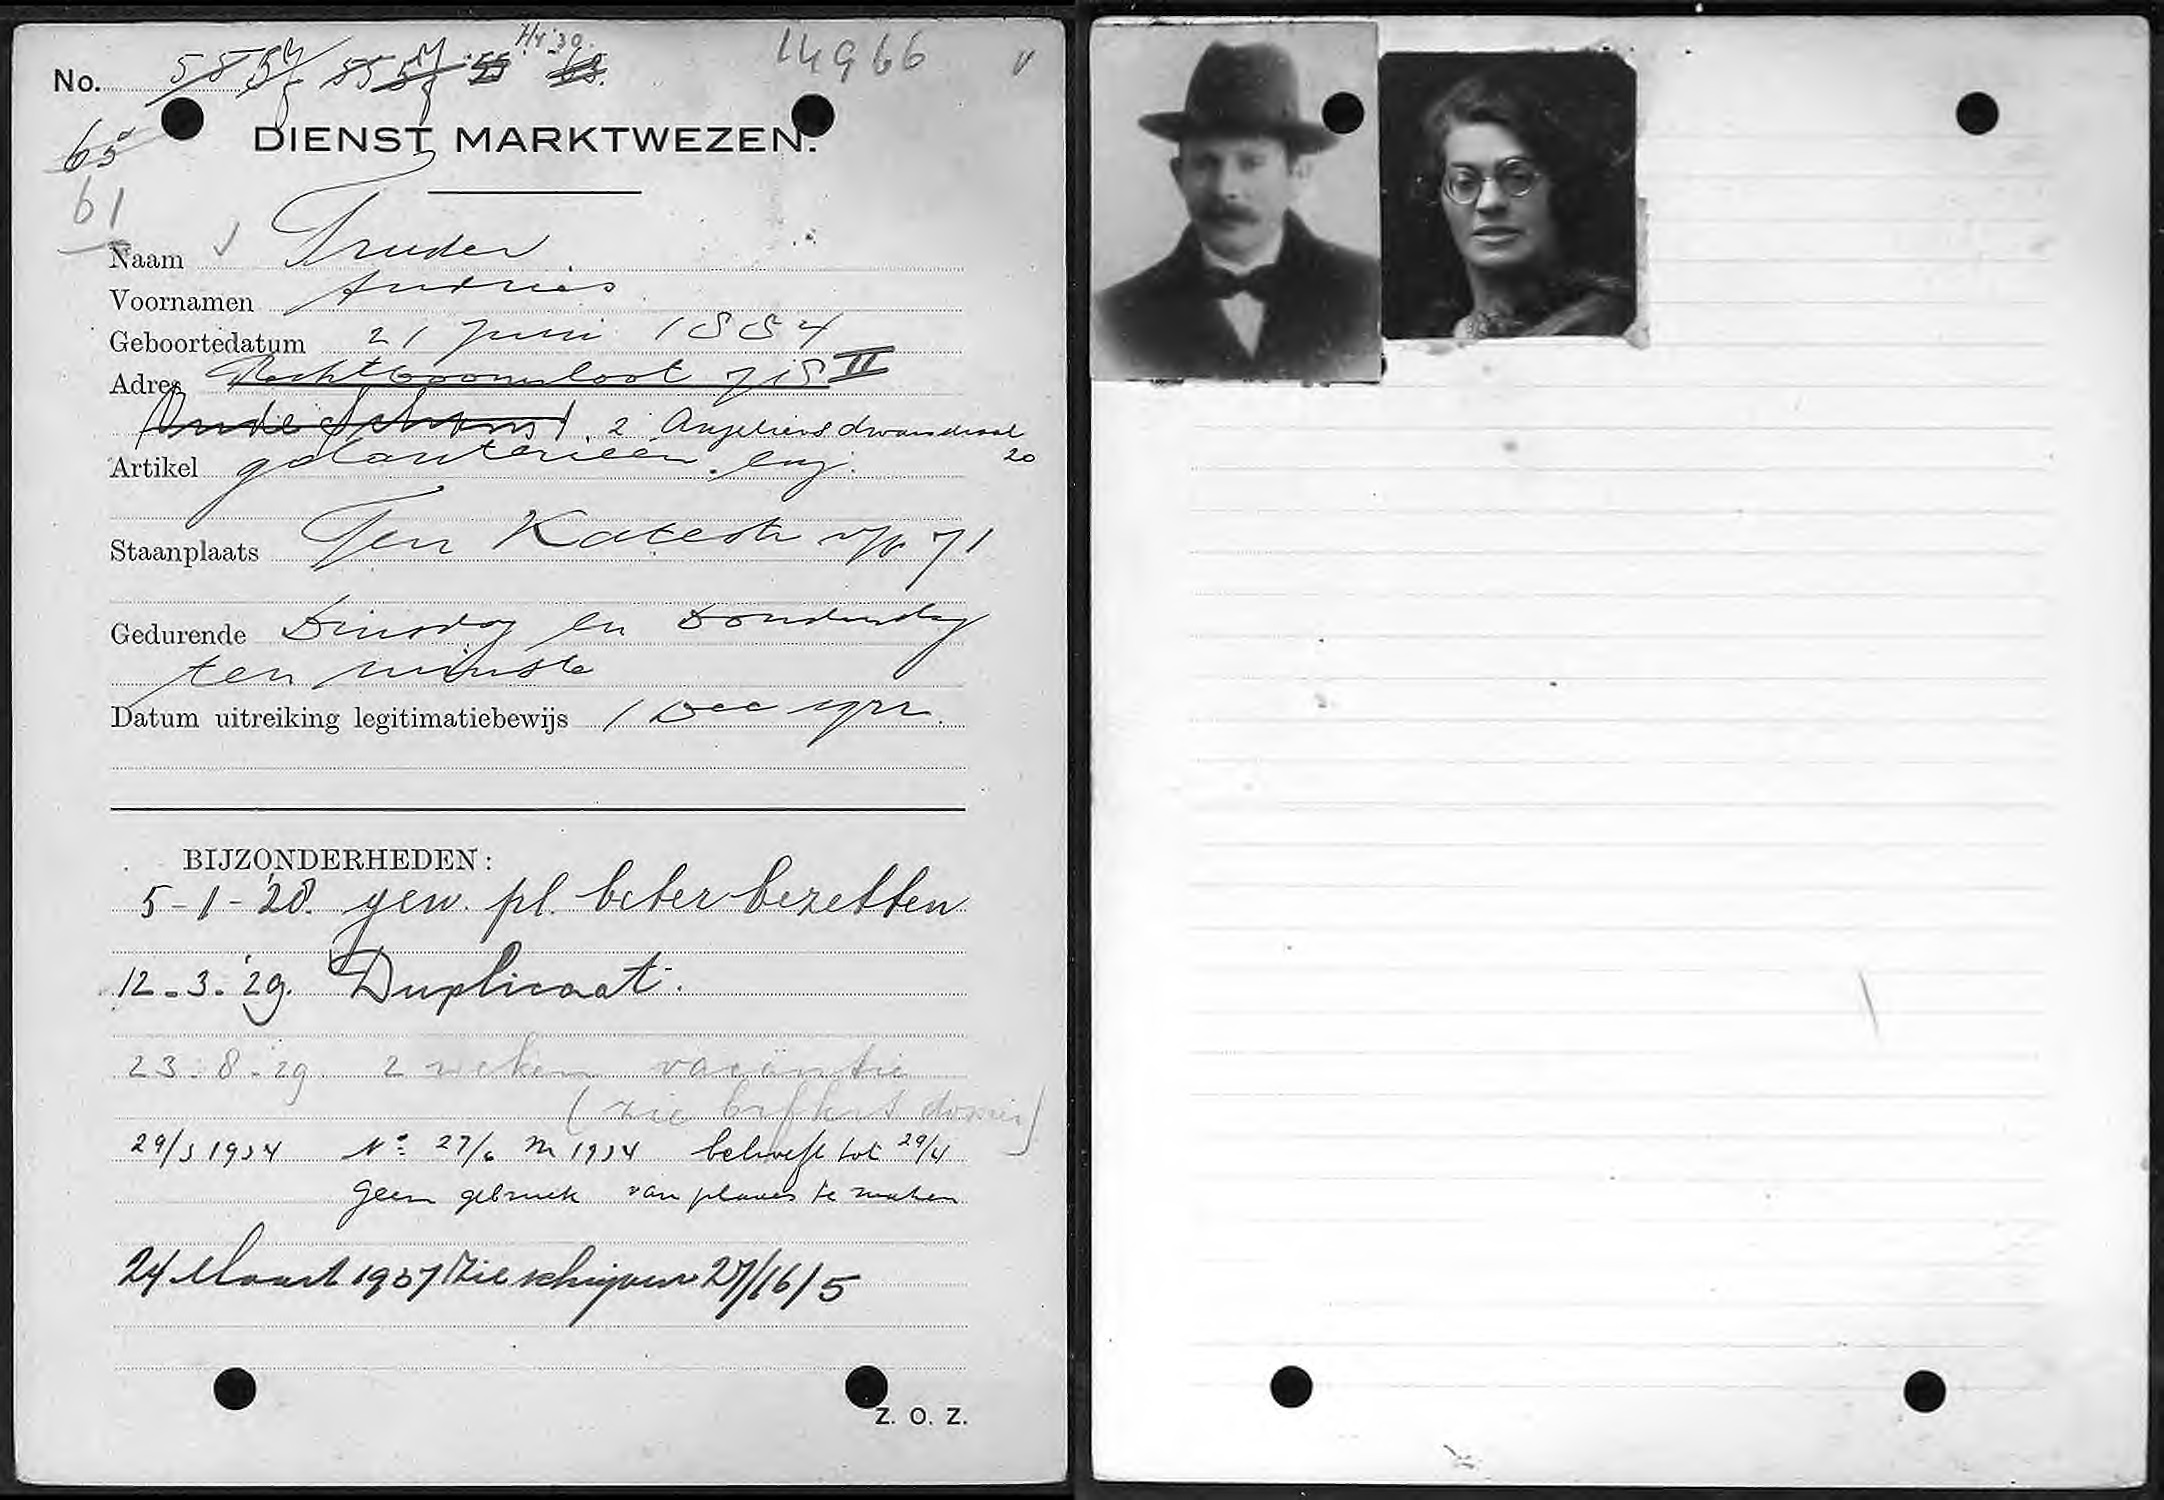 No. 58 57 85 57 55 63. 14966 v
Hr '30.
65
DIENST MARKTWEZEN.
61
Naam Truder
Voornamen Andries
Geboortedatum 21 juni 1884
Adres Rechtboomsloot 71 II
Oude Schans 2 Angeliersdwarsstraat
20
Artikel galanterieën. enz.
Staanplaats Ten Katestr 71
Gedurende Dinsdag en Donderdag
ten minste
Datum uitreiking legitimatiebewijs 1 Dec
BIJZONDERHEDEN:
5-1-'28. gew. pl. beter bezetten
12-3-'29. Duplicaat.
23-8-'29. 2 weken vacantie
(zie dossier)
29/3 1934 No 27/6 M 1934 behoeft tot 29/4
geen gebruik van plaats te maken
24 Maart 1937 Zie schrijven 27/16/5
Z. O. Z.